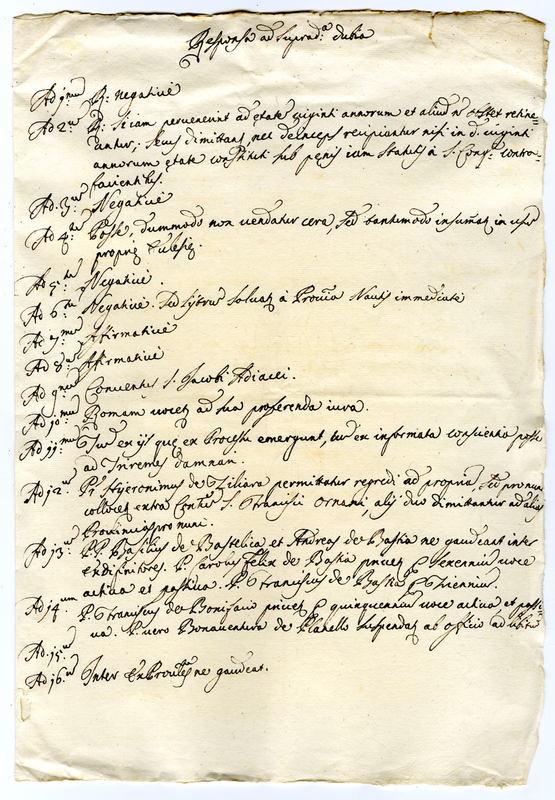 Responsa ad suprad.a dubia
Ad 1mum R: Negativè
Ad 2.m R: Si iam pervenerint ad etatem viginti annorum et aliud n obstet retine=
antur; secus dimittant, nec deinceps recipiantur nisi in d. viginti
annorum etate constituti sub penis iam statutis à S. Cong.e contra
facientibus.
Ad. 3.m Negativè
Ad 4.tum Posse, dummodo non vendatur cera, sed tantumodo insumat in usus
proprie Ecclesie.
Ad 5.tum Negativè.
Ad 6.tum Negativè. Sed solvat à Provcia Nautis immediate
Ad 7.mum Affirmativè
Ad 8.um Affirmativè
Ad 9num Conventus S. Jacobi Adiacei.
Ad 10.mum Romam vocet ad sua proferenda iura.
Ad 11.mum Tum ex ijs que ex Processu emergunt, tum ex informata conscientia posse
ad Triremes damnari.
Ad 12.m Pr Hyeronimus de Ziliara permittatur regredi ad propria, sed pro nunc
collocet extra Contum S. Francisci Ornani, alij duo dimittantur ad alias
Provincias pro nunc.
Ad 13.m P.P. Basilius de Bastelica et Andreas de Bastia ne gaudeant inter
Exdifinitores. P. Carolus Felix de Bastia privet p sexennium voce
activa et passiva. P. Franciscus de Bastia p Triennium.
Ad 14.um P. Franciscus de Bonifacio privet p quinquennium voce activa, et passi=
va. P. vero Bonaventura de Pianello suspendat ab officio ad libitum
Ad. 15.m
Ad 16.m Inter ExProules ne gaudeat.